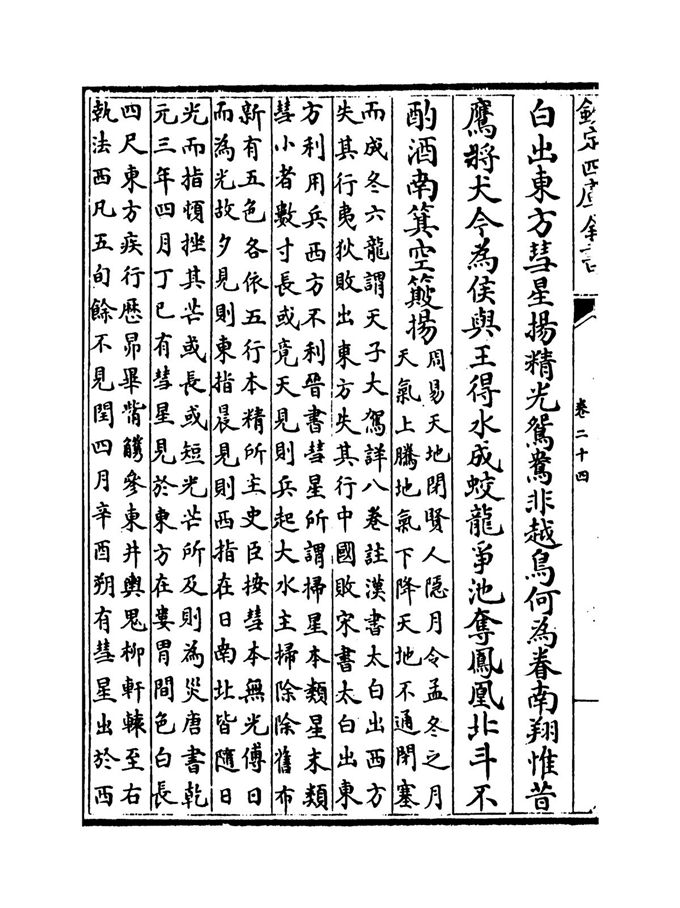 欽定四庫全書
卷二十四
白出東方彗星揚精光鴛鴦非越鳥何為眷南翔惟昔
鷹將犬今為侯與王得水成蛟龍爭池奪鳳凰北斗不
酌酒南箕空簸揚
周易天地閉賢人隱月令孟冬之月
天氣上騰地氣下降天地不通閉塞
而成冬六龍謂天子大駕詳八卷註漢書太白出西方
失其行夷狄敗出東方失其行中國敗宋書太白出東
方利用兵西方不利晉書彗星所謂掃星本類星末類
彗小者數寸長或竟天見則兵起大水主掃除除舊布
新有五色各依五行本精所主史臣按彗本無光傅日
而為光故夕見則東指晨見則西指在日南北皆隨日
光而指頓挫其芒或長或短光芒所及則為災唐書乾
元三年四月丁巳有彗星見於東方在婁胃間色白長
四尺東方疾行歷昴畢觜觿參東井輿鬼柳軒轅至右
執法西凡五旬餘不見閏四月辛酉朔有彗星出於西